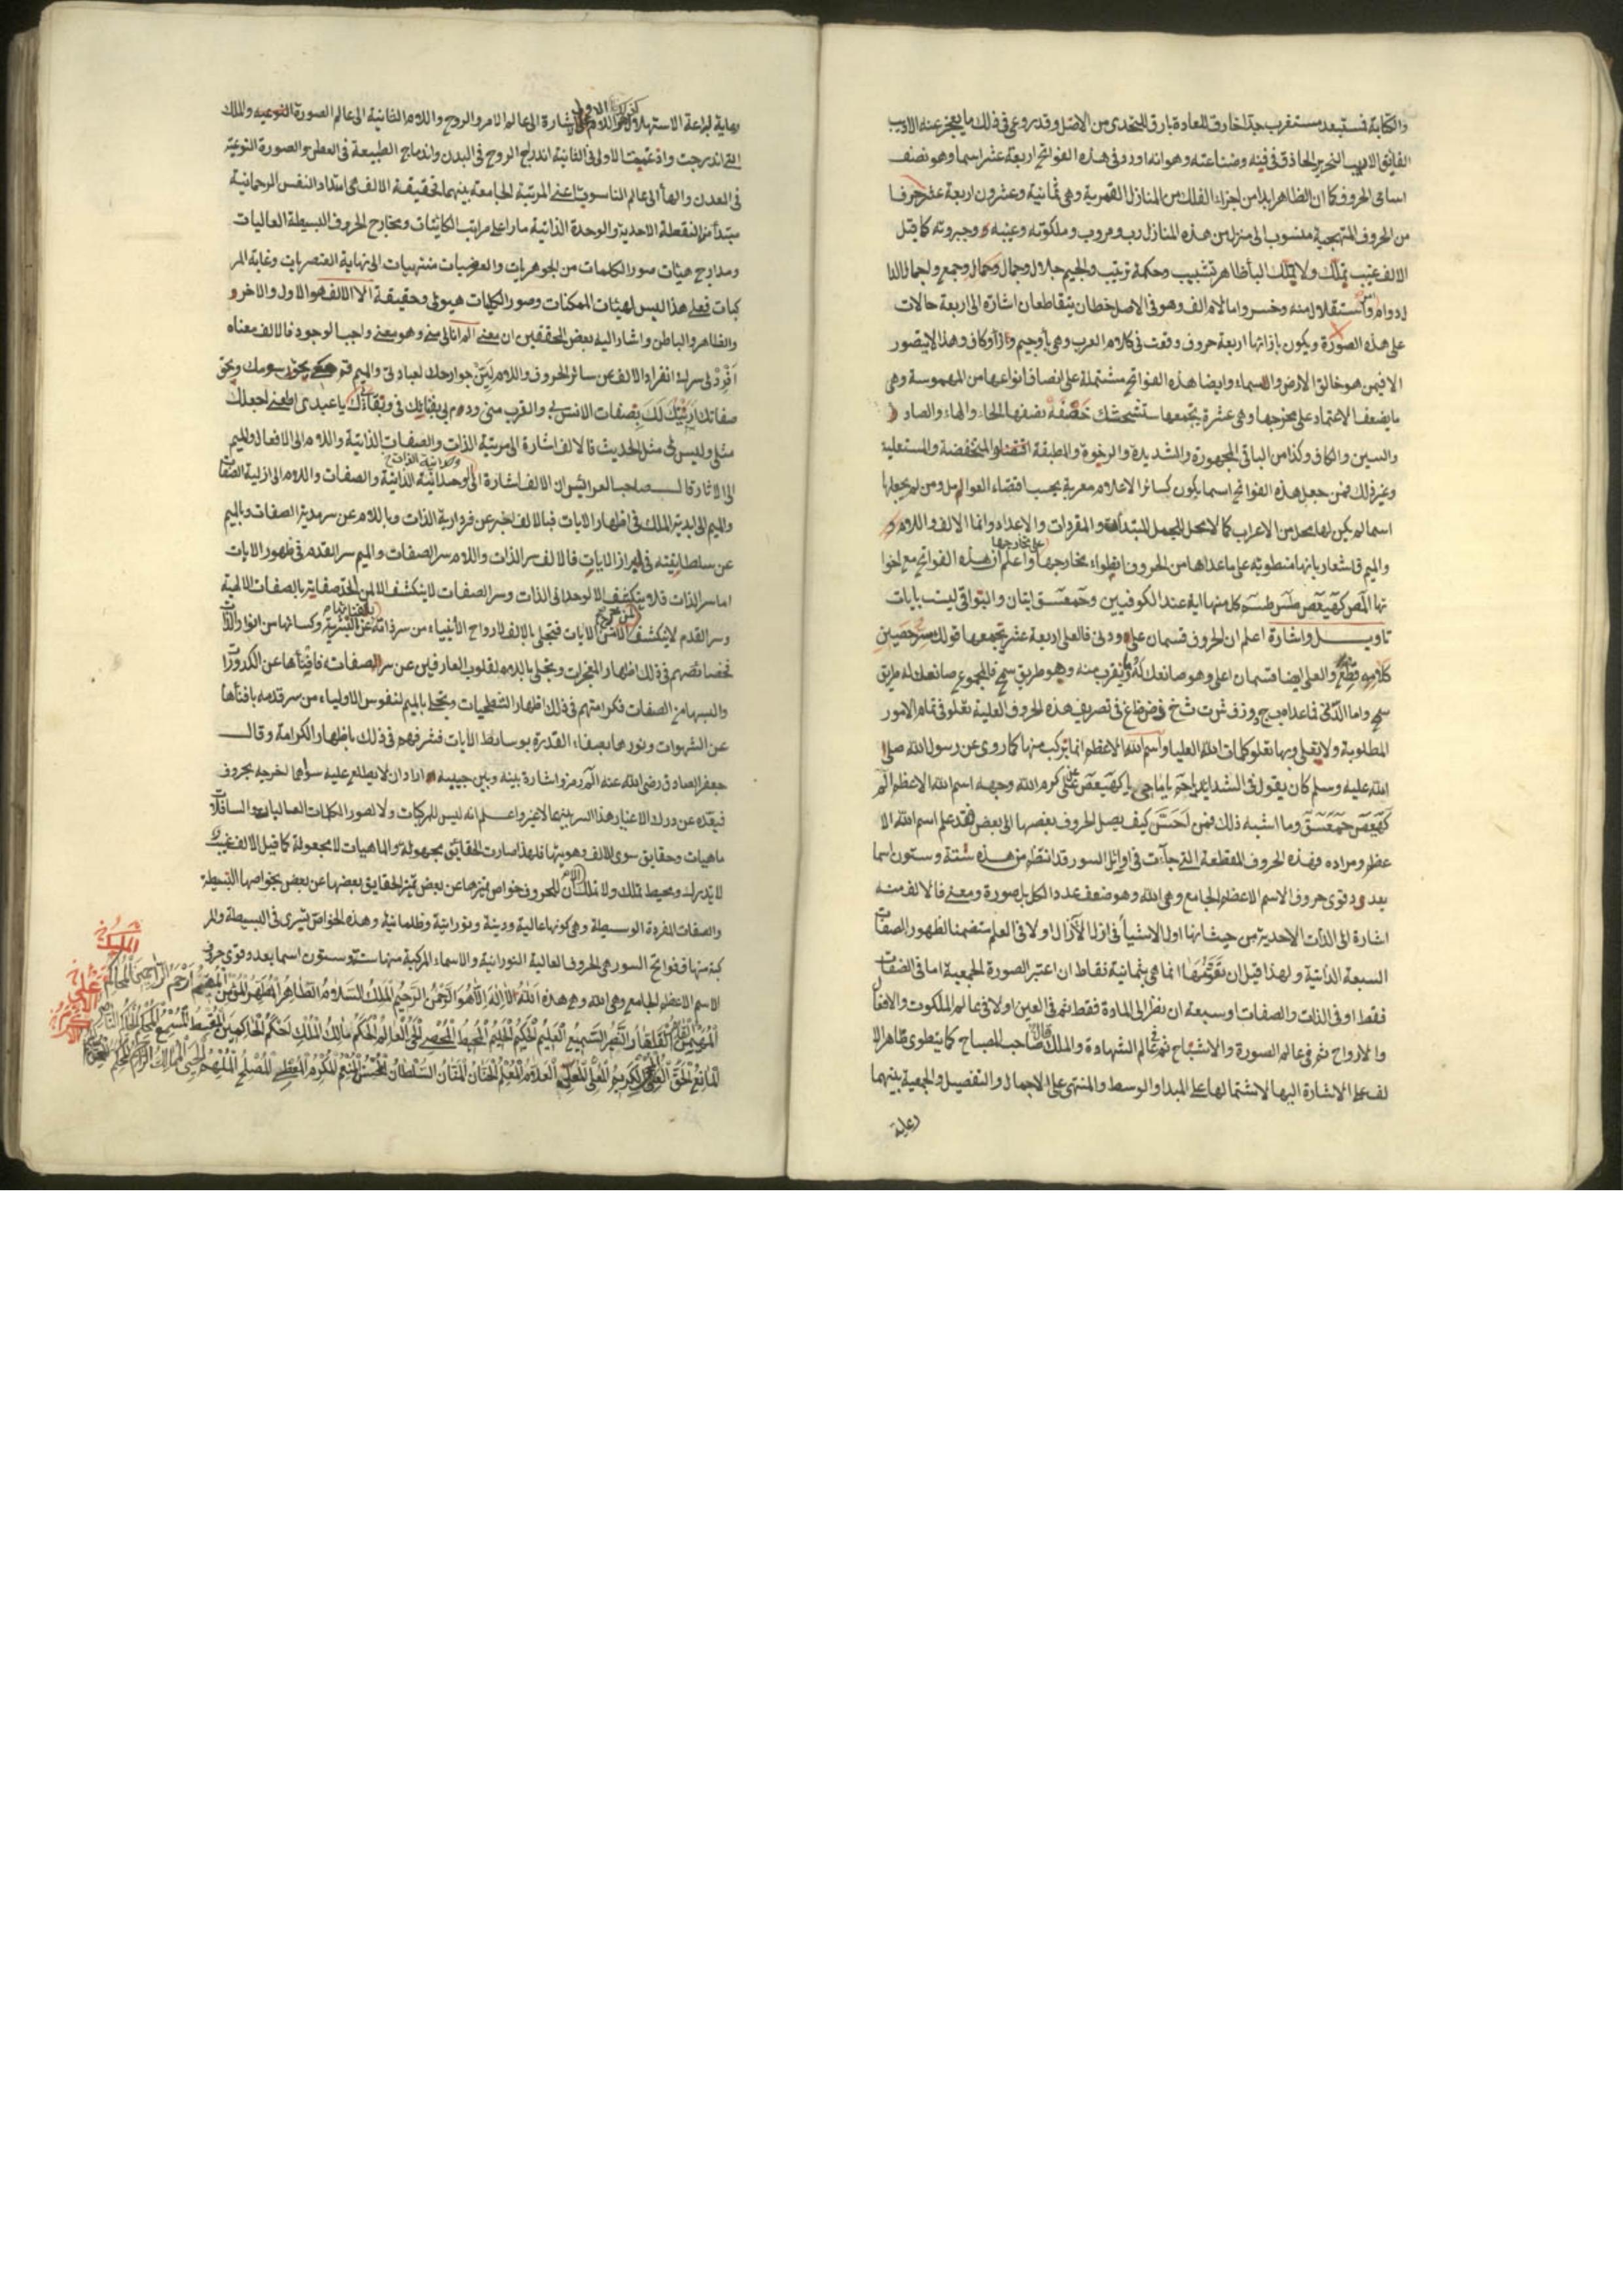 والكتابة فستبعد مستغرب جدا خارق للعادة بارق للتحدى من الاصل وقد روعى فى ذلك ما يعجز عنه الاديب
الفايق الاريب النحرير الحاذق فى فنه وصناعته وهو انه اورد فى هذه الفواتح اربعة عشر اسما وهو نصف
اسامى الحروف كما ان الظاهر ابدا من اجزاء الفلك من المنازل القمرية وهى ثمانية وعشرون اربعة عشر حرفا
من الحروف المتهجية منسوب الى منزل من هذه المنازل رب ومربوب وملكوته وغيبه وجبروته كما قيل
الالف غيب يملك ولا يملك البا ظاهر تشبيب وحكمة ترتيب والجيم جلال وجمال وكمال وجمع واجمال الدا
ل دوام واستقلال منه وخسر واما لام الف وهو فى الاصل خطان يتقاطعان اشارة الى اربعة حالات
على هذه الصورة ويكون بازائها اربعة حروف وقعت فى كلام العرب وهى با وجيم وزا وكاف وهذا لا يتصور
الا فيمن هو خالق الارض والسماء وايضا هذه الفواتح مشتملة على انصاف انواعها من المهموسة وهى
ما يضعف الاعتماد على مخرجها وهى عشرة يجمعها ستشحثك خصفه نصفها الحاء والهاء والصاد
والسين والكاف وكذا من الباقى المجهورة والشديدة والرخوة والمطبقة والمنخفضة والمستعلية
وغير ذلك فمن جعل هذه الفواتح اسما يكون كسائر الاعلام معربة بحسب اقتضاء العوامل ومن لم يجعلها
اسما لم يكن لها محل من الاعراب كما لا محل للجمل المبتدأة والمفردات والاعداد وانما الالف واللام و
والميم فاشعار بانها منطوية على ما عداها من الحروف على مخارجها واعلم ان هذه الفواتح مع اخوا
تها المص كهيعص طس طسم كل منها اية عند الكوفيين وحمعسق ايتان والبواقى ليست بايات
تاويل واشارة اعلم ان الحروف قسمان على ودنى فالعلى اربعة عشر يجمعها قولك سر حصين
كلامه قطع والعلى ايضا قسمان اعلى وهو يقرب منه وهو طريق سمح فالمجموع صانعك له طريق
سمح واما الدنى فما عداه ب ج د و ز ف ش ت ث خ ذ ض ظ غ فى تصريف هذه الحروف العلية تعلو فى تمام الامور
المطلوبة وبها تعلو كلمات الله العليا واسم الله الاعظم انما يتركب منها كما روى عن رسول الله صلى
الله عليه وسلم كان يقول فى الشدايد يا كهيعص على كرم الله وجهه اسم الله الاعظم الم
كهيعص حمعسق وما اشبه ذلك فمن كيف يصل الحروف بعضها الى بعض فقد علم اسم الله الا
عظم ومراده فهذه الحروف المقطعة التى جاءت فى اوائل السور قد انتظم من هذه ستة وستون اسما
بعدد قوى حروف الاسم الاعظم الجامع وهى الله وهو ضعف عدد الكل بل صورة ومعنى فالالف منه
اشارة الى الذات الاحدية من حيث انها اول الاشيأ فى ازل الازال اولا فى العلم متضمنا لظهور الصفات
السبعة الذاتية ولهذا قيل ان انما هى بثمانية نقاط ان اعتبر الصورة الجمعية اما فى الصفات
فقط او فى الذات والصفات او سبعة ان نظر الى المادة فقط ثم فى العين اولا فى عالم الملكوت والافعال
والارواح ثم فى عالم الصورة والاشباح ثم عالم الشهادة والملك قال صاحب المصباح كما ينطوى ظاهر الا
لف على الاشارة اليها لاشتمالها على المبدا والوسط والمنتهى على الاجمال والتفصيل والجمعية بينهما
رعاية
رعاية لبراعة الاستهلال اشارة الى عالم الامر والروح واللام الثانية الى عالم الصورة النوعية والملك
التى اندرجت وادغمت الاولى فى الثانية اندراج الروح فى البدن واندماج الطبيعة فى العطن والصورة النوعية
فى المعدن والهأ الى عالم الناسوت اعنى المرتبة الجامعة بينهما فحقيقة الالف هى امتداد النفس الرحمانية
مبتدأ من النقطة الاحدية والوحدة الذاتية مارا على مراتب الكائنات ومخارج الحروف البسيطة العاليات
ومدارج هيئات صور الكلمات من الجوهريات والعرضيات منتهيات الى نهاية العنصريات وغاية المر
كبات فعلى هذا ليس لهيئات الممكنات وصور الكلمات هيولى وحقيقة الا الالف هو الاول والاخر و
والظاهر والباطن واشار اليه بعض المحققين ان معنى الم انا لى منى وهو معنى واجب الوجود فالالف معناه
افرد لى سرك انفراد الالف عن سائر الحروف واللام لين جوارحك لعبادتى والميم قم معى بمحو رسومك ومحو
صفاتك ازينك بصفات الانس بى والقرب منى يا عبدى اطعنى اجعلك
مثلى وليس لى مثل الحديث فالالف اشارة الى مرتبة الذات والصفات الذاتية واللام الى الافعال والميم
الى الاثار قال صاحب العرائس ان الالف اشارة الى وحدانية الذاتية والصفات واللام الى ازلية الصفات
والميم الى ابدية الملك فى اظهار الايات فبالالف اخبر عن فردانية الذات وباللام عن سرمدية الصفات وبالميم
عن سلطانيته فى ابراز الايات فالالف سر الذات واللام سر الصفات والميم سر القدم فى ظهور الايات
اما سر الذات فلا ينكشف الا لوحد الى الذات وسر الصفات لا ينكشف الا لمن اتحد صفاته بالصفات الالهية
وسر القدم لا ينكشف الايات فتجلى بالالف لارواح الانبياء من سر ذاته عن البشرية وكساءها من انوار الذات
فخصائصهم فى ذلك اظهار المعجزات وتجلى باللام لقلوب العارفين عن سر الصفات فافناها عن الكدورات
والبسها من الصفات فكرامتهم فى ذلك اظهار الشطحيات وتجلى بالميم لنفوس الاولياء من سر قدمه بافنأها
عن الشهوات ونورها بصفاء القدرة بوسائط الايات فشرفهم فى ذلك باظهار الكرامة وقال
جعفر الصادق رضى الله عنه الم رمز واشارة بينه وبين حبيبه اراد ان لا يطلع عليه سواهما اخرجه بحروف
فبعده عن درك الاغيار هذا السر بينهما لا غير واعلم انه ليس للمركبات ولا لصور الكلمات العاليات والسافلات
ماهيات وحقايق سوى الالف وهويتها فلهذا صارت الحقائق مجهولة والماهيات لا مجعولة كما قيل الالف غيب
لا يدرك ومحيط يملك ولا يملك ان للحروف خواص تميزها عن بعض تميز الحقايق بعضها عن بعض بخواصها البسيطة
والصفات الفردة الوسيطة وهى كونها عالية ودينة ونورانية وظلمانية وهذه الخواص تسرى فى البسيطة والمر
كبة منها ففواتح السور هى الحروف العالية النورانية والاسماء المركبة منها ستة وستون اسما بعدد قوى حرفى
الاسم الاعظم الجامع وهى الله وهى هذه الله الاله الا هو الرحمن الرحيم الملك السلام الطاهر المطهر المؤمن
المهيمن القهار السميع العليم الحكيم الحليم المحيط المحصى الحى العالم الحكم مالك الملك احكم الحاكمين المقسط
المانع الحق العلى الكريم العلام المنعم الحنان المنان السلطان المحسن المنعم المكرم المعطى المصلح الملهم